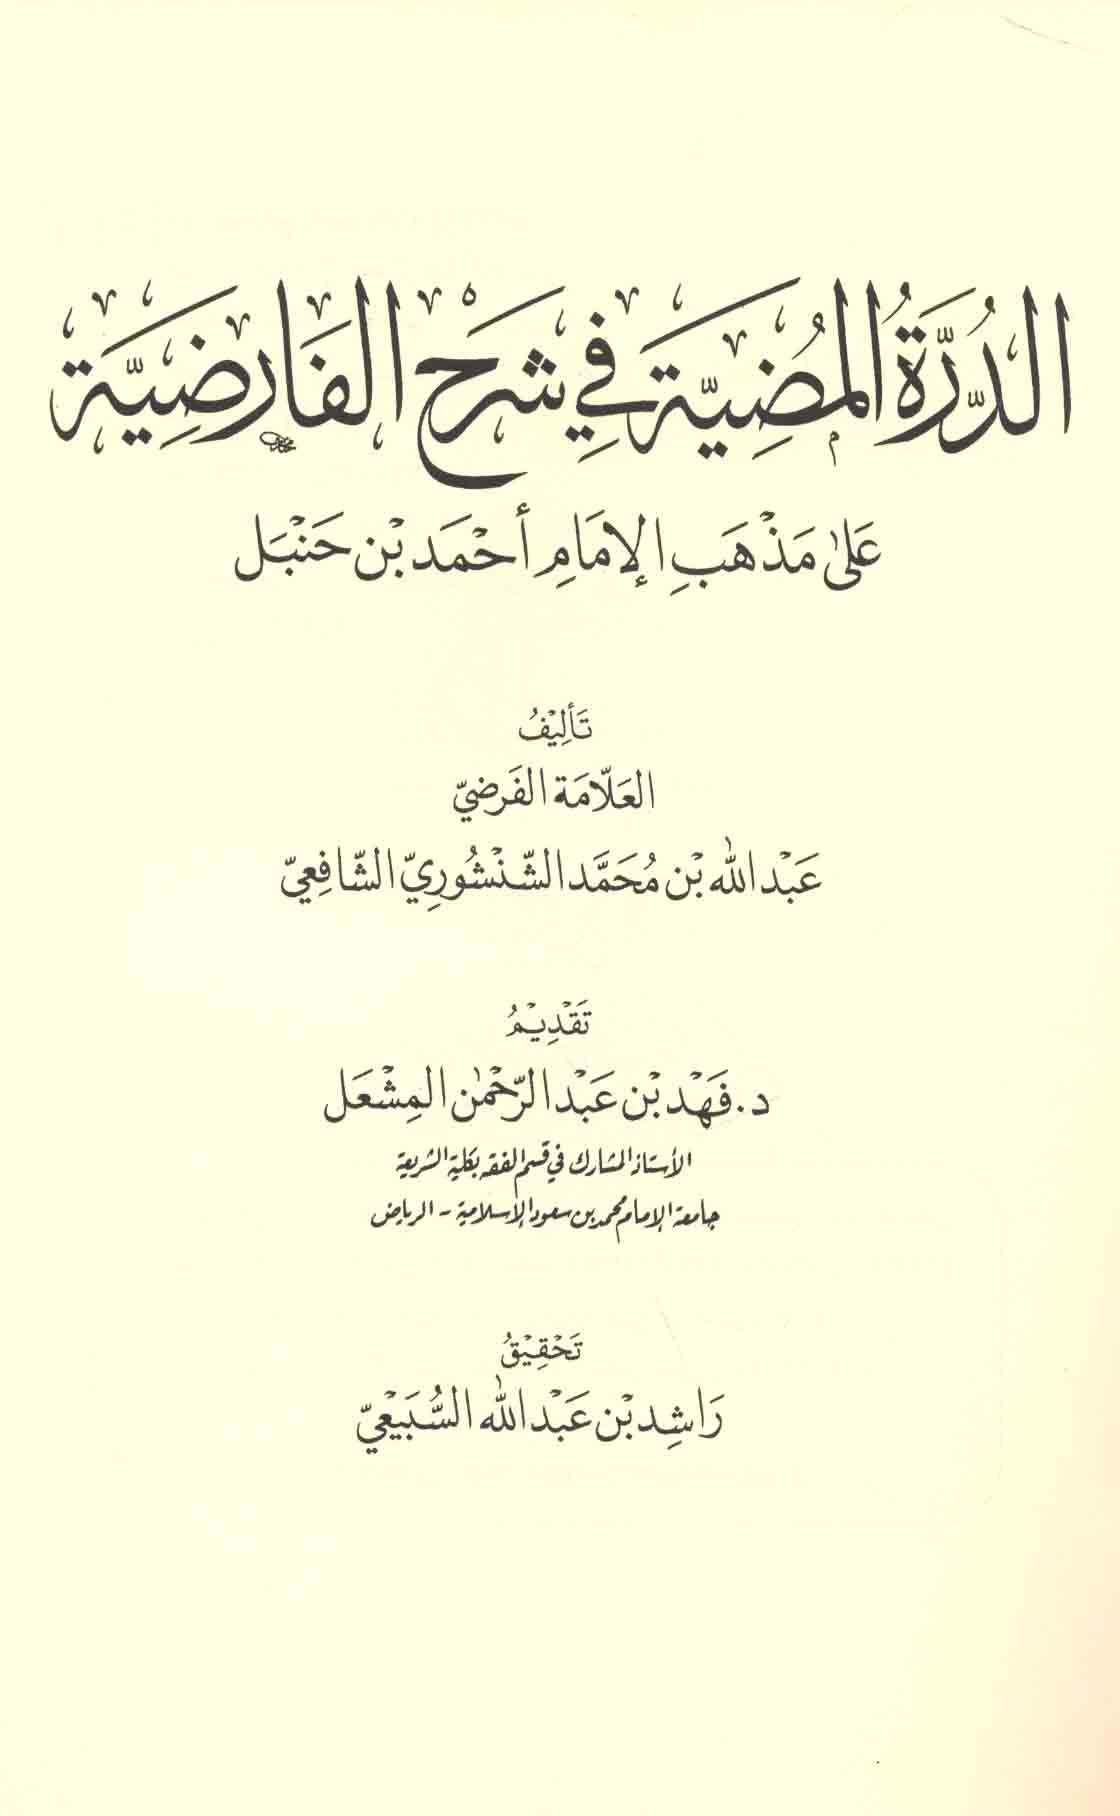 الدُّرَّةُ المُضِيَّة فِي شَرْح الفَارِضِيَّة
عَلىٰ مَذْهَبِ الإِمَامِ أَحْمَد بْن حَنْبَل
تَأْلِيْفُ
العَلّامَة الفَرضيّ
عَبْد اللّٰه بْن مُحَمَّد الشّنْشُورِيّ الشّافِعِيّ
تَقْدِيْمُ
د. فَهْد بْن عَبْد الرّحْمٰن المِشْعَل
الأستاذ المشارك في قسم الفقه بكلية الشريعة
جامعة الإمام محمد بن سعود الإسلامية - الرياض
تَحْقِيْقُ
رَاشِد بْن عَبْد اللّٰه السُّبَيْعِيّ